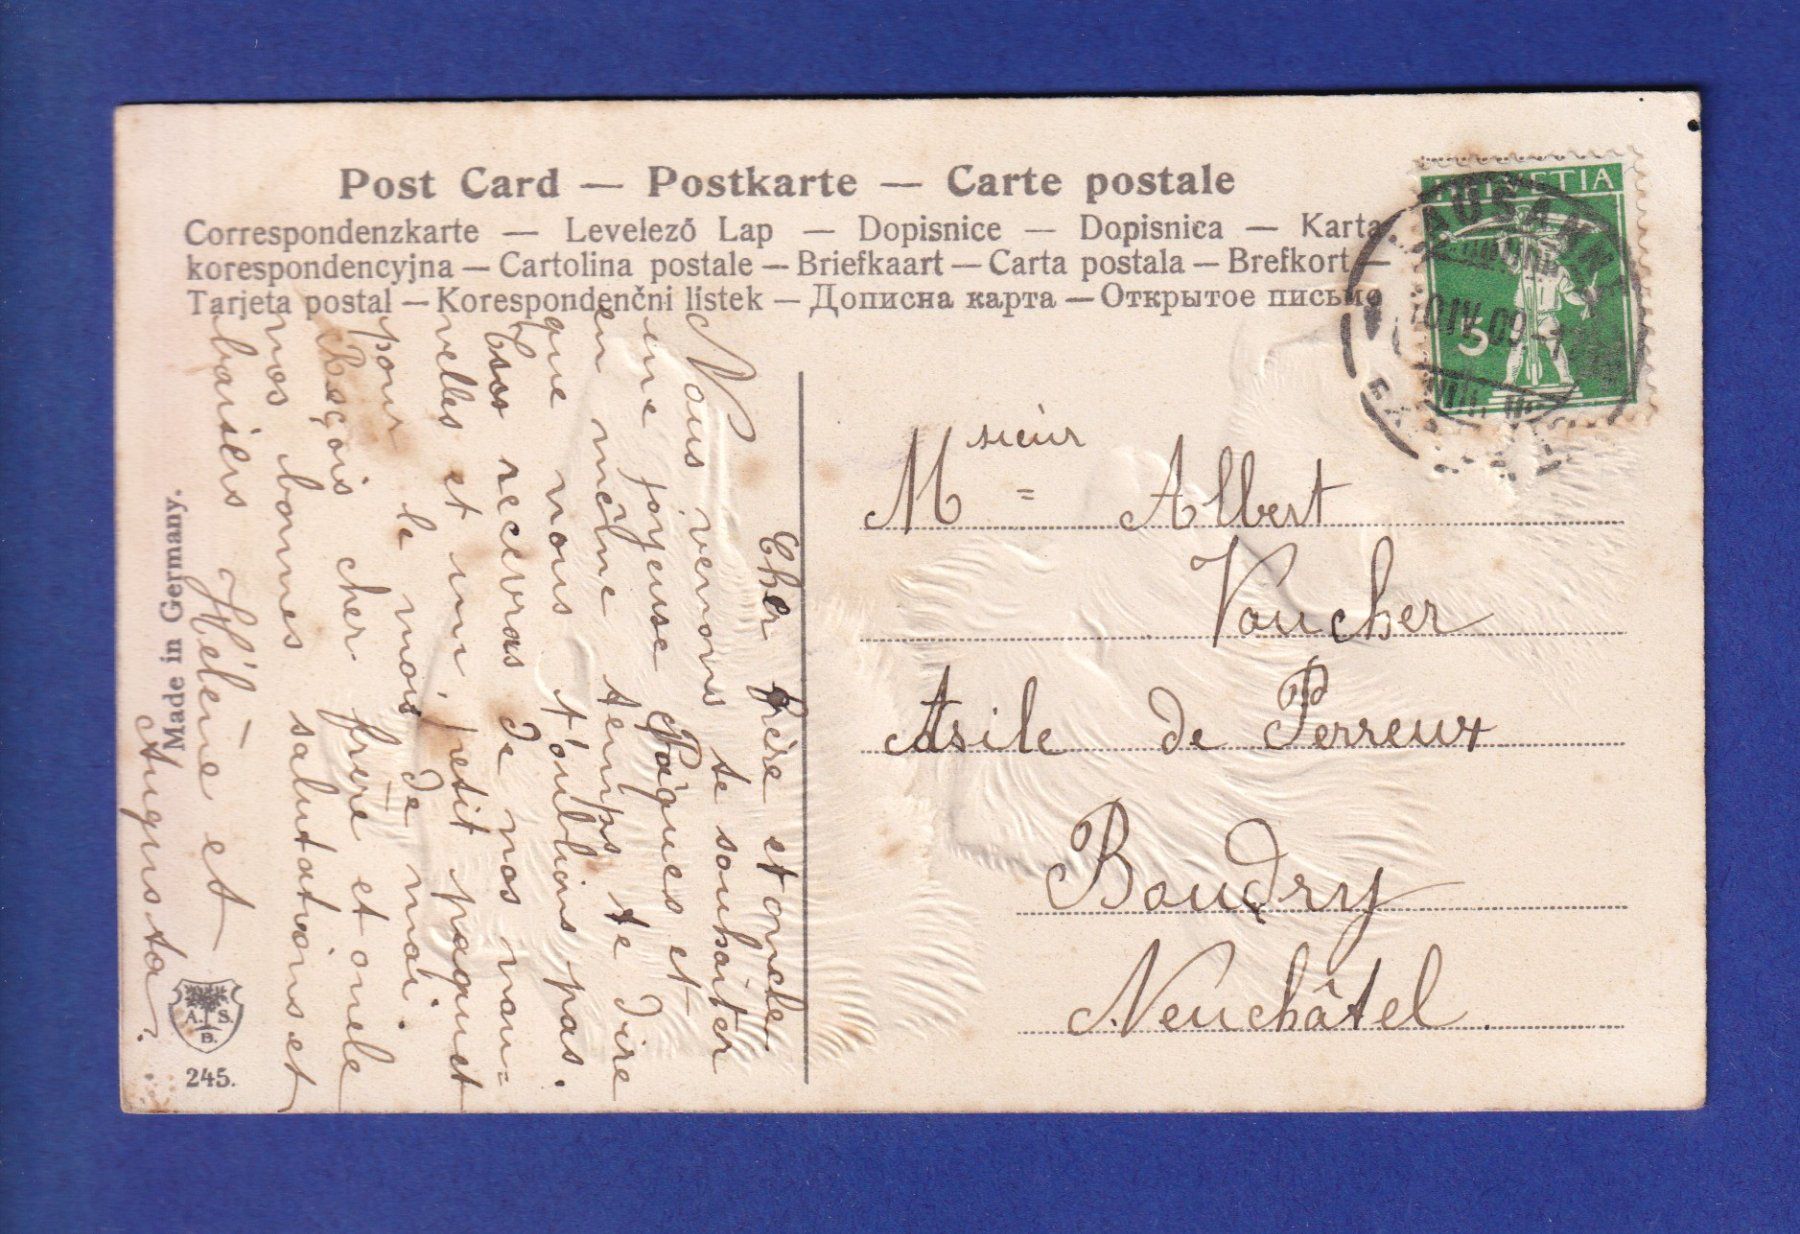 Post Card — Postkarte — Carte postale
Correspondenzkarte — Levelező Lap — Dopisnice — Dopisnica — Karta
korespondencyjna — Cartolina postale — Briefkaart — Carta postala — Brefkort —
Tarjeta postal — Korespondenčni listek — Дописна карта — Открытое письмо
HELVETIA
5
LAUSANNE
10 IV 09
Msieur = Albert
Vaucher
Asile de Perreux
Boudry
Neuchâtel.
Cher frère et oncle
Nous venons te souhaiter
une joyeuse Pâques et
en même temps te dire
que nous t'oublions pas.
Tu recevras de nos nou=
velles et un petit paquet
pour le mois de mai.
Reçois cher frère et oncle
nos bonnes salutations et
baisers Hélène et
Augusta.
Made in Germany.
A. S.
B.
245.